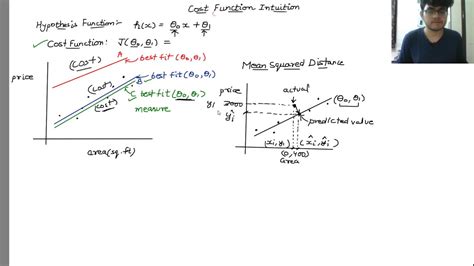 Cost Function Intuition
Hypothesis Function:- h(x) = θ₀x + θ₁
✓ Cost Function: J(θ₀, θ₁) =
(cost)
A
best fit (θ₀, θ₁)
price
(cost)
best fit (θ₀, θ₁)
(cost)
best fit (θ₀, θ₁)
measure
area(sq.ft)
Mean Squared Distance
price
actual
yi
2000
(θ₀, θ₁)
ŷi
predicted value
(xi, yi)
(x̂i, ŷi)
(0,400)
area